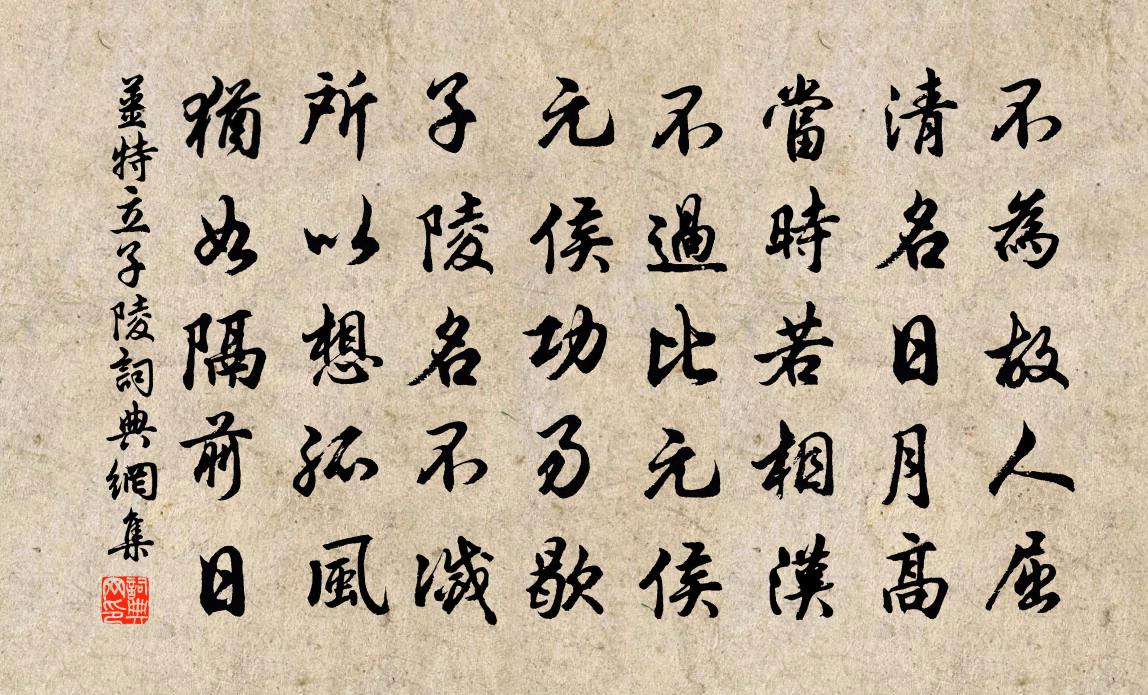 不為故人屈
清名日月高
當時若相漢
不過比元侯
元侯功易歇
子陵名不滅
所以想孤風
猶如隔前日
薑特立子陵詞典網集
詞典网印